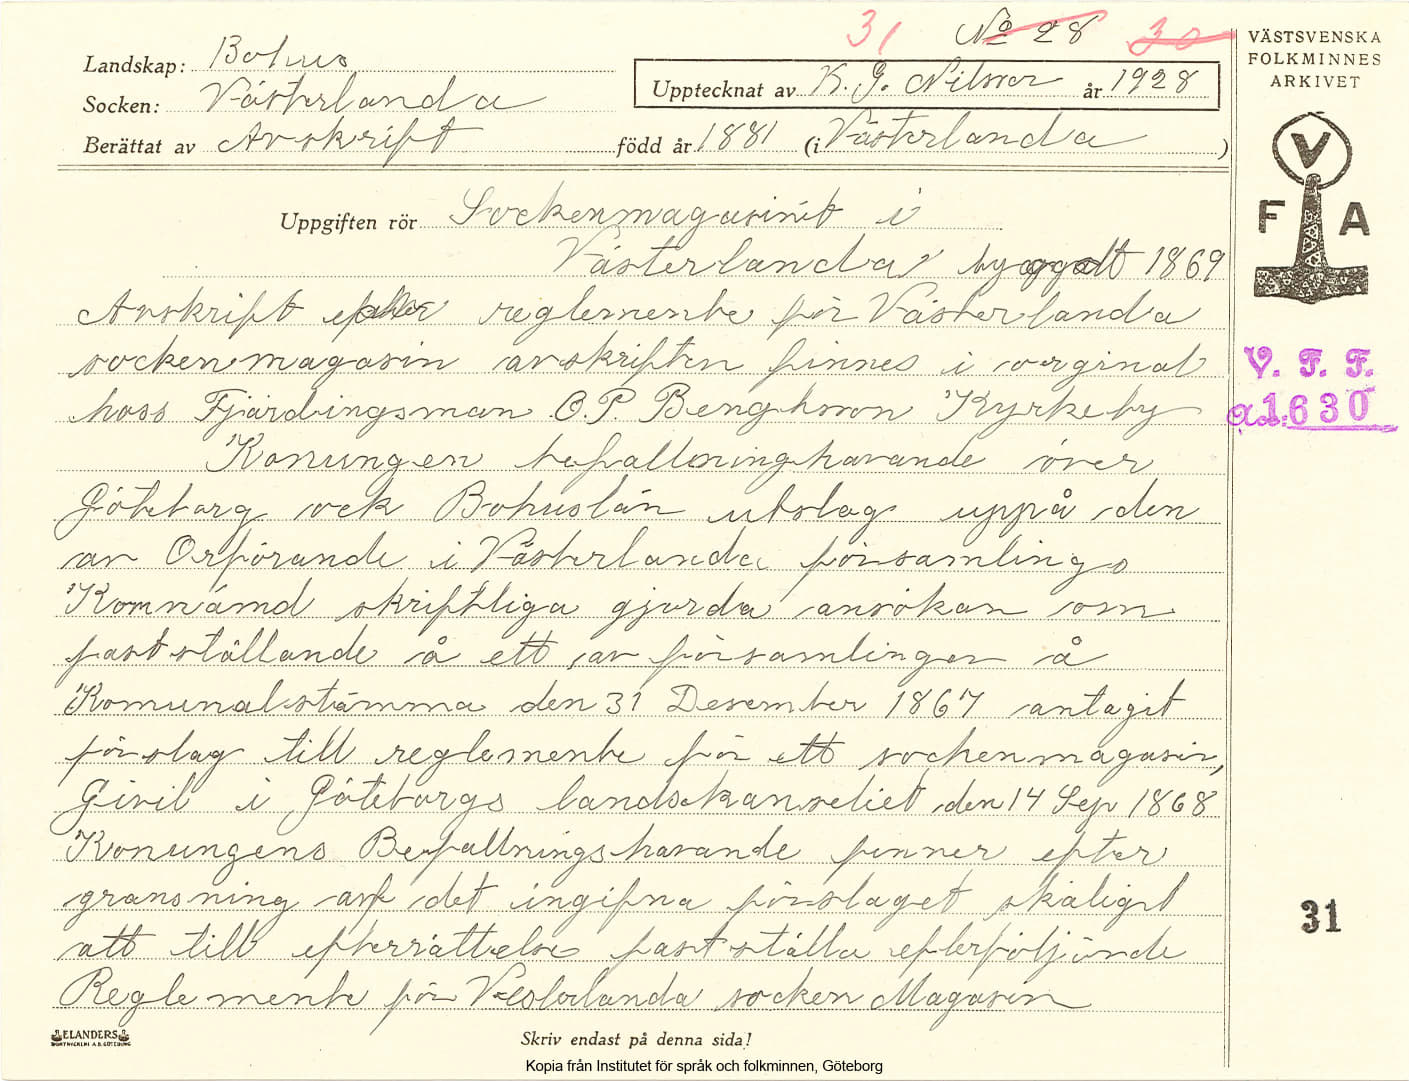 31 No 28 30
Landskap: Bohus
Socken: Västerlanda
Upptecknat av K. G. Nilsson år 1928
Berättat av Avskrift född år 1881 (i Västerlanda )
Uppgiften rör Sockenmagasinet i
Västerlanda byggdt 1869
Avskrift efter reglemente för Västerlanda
sockenmagasin avskriften finnes i orginal
hoss Fjärdingsman O. P. Bengtsson Kyrkeby
Konungen befallningshavande över
Göteborg ock Bohuslän utslag uppå den
av Orförande i Västerlanda församlings
Komnämd skriftliga gjorda ansökan om
fastställande å ett av församlingen å
Komunalstämma den 31 Desember 1867 antagit
förslag till reglemente för ett sockenmagasin,
Givil i Göteborgs landskansliet den 14 Sep 1868
Konungens Befallningshavande finner efter
gransning af det ingifna förslaget skäligt
att till efterrättelse fastställa efterföljande
Reglemente för Vesterlanda socken Magasin
ELANDERS
BOKTRYCKERI A.B. GÖTEBORG
Skriv endast på denna sida!
Kopia från Institutet för språk och folkminnen, Göteborg
VÄSTSVENSKA
FOLKMINNES
ARKIVET
V
F A
V. F. F.
a1:630
31